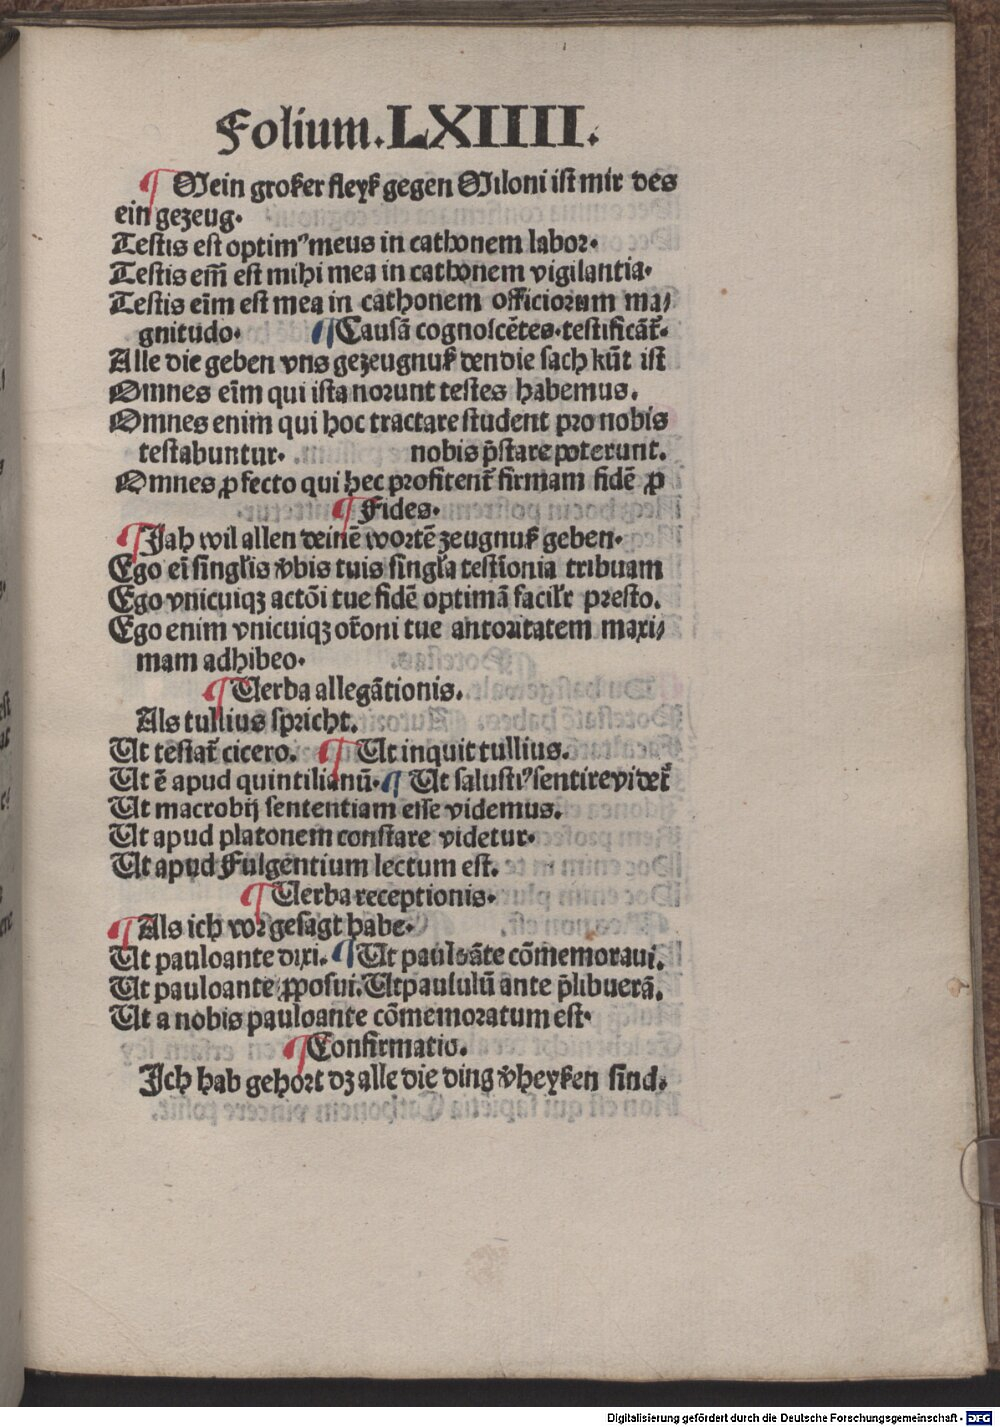 Folium.LXIIII.
¶ Mein groſſer fleyſſ gegen Miloni iſt mir des
ein gezeug.
Teſtis eſt optimꝰ meus in cathonem labor.
Teſtis em̄ eſt mihi mea in cathonem vigilantia.
Teſtis eīm eſt mea in cathonem officiorum ma/
gnitudo. ¶ Cauſā cognoſcētes.teſtificāt̄.
Alle die geben vns gezeugnuſſ den die ſach kūt iſt
Omnes eīm qui iſta norunt teſtes habemus.
Omnes enim qui hoc tractare ſtudent pro nobis
teſtabuntur. nobis p̄ſtare poterunt.
Omnes ꝓfecto qui hec profitent̄ firmam fidē ꝓ
¶ Fides.
¶ Jah wil allen deinē wortē zeugnuſſ geben.
Ego eī ſingl̓is v̄bis tuis ſingl̓a teſtīonia tribuam
Ego vnicuiqꝫ actōi tue fidē optimā facil̓r preſto.
Ego enim vnicuiqꝫ or̄oni tue autoritatem maxi/
mam adhibeo.
¶ Verba allegātionis.
Als tullius ſpricht.
Ut teſtat̄ cicero. ¶ Ut inquit tullius.
Ut ē apud quintilianū. ¶ Ut ſaluſtiꝰ ſentire videt̄
Ut macrobij ſententiam eſſe videmus.
Ut apud platonem conſtare videtur.
Ut apud Fulgentium lectum eſt.
¶ Verba receptionis.
¶ Als ich vor geſagt habe.
Ut pauloante dixi. ¶ Ut pauloāte cōmemoraui.
Ut pauloante ꝓpoſui. Ut paululū ante p̄libuerā.
Ut a nobis pauloante cōmemoratum eſt.
¶ Confirmatio.
Ich hab gehort dꝫ alle die ding v̄heyſſen ſind.
Digitalisierung gefördert durch die Deutsche Forschungsgemeinschaft - DFG